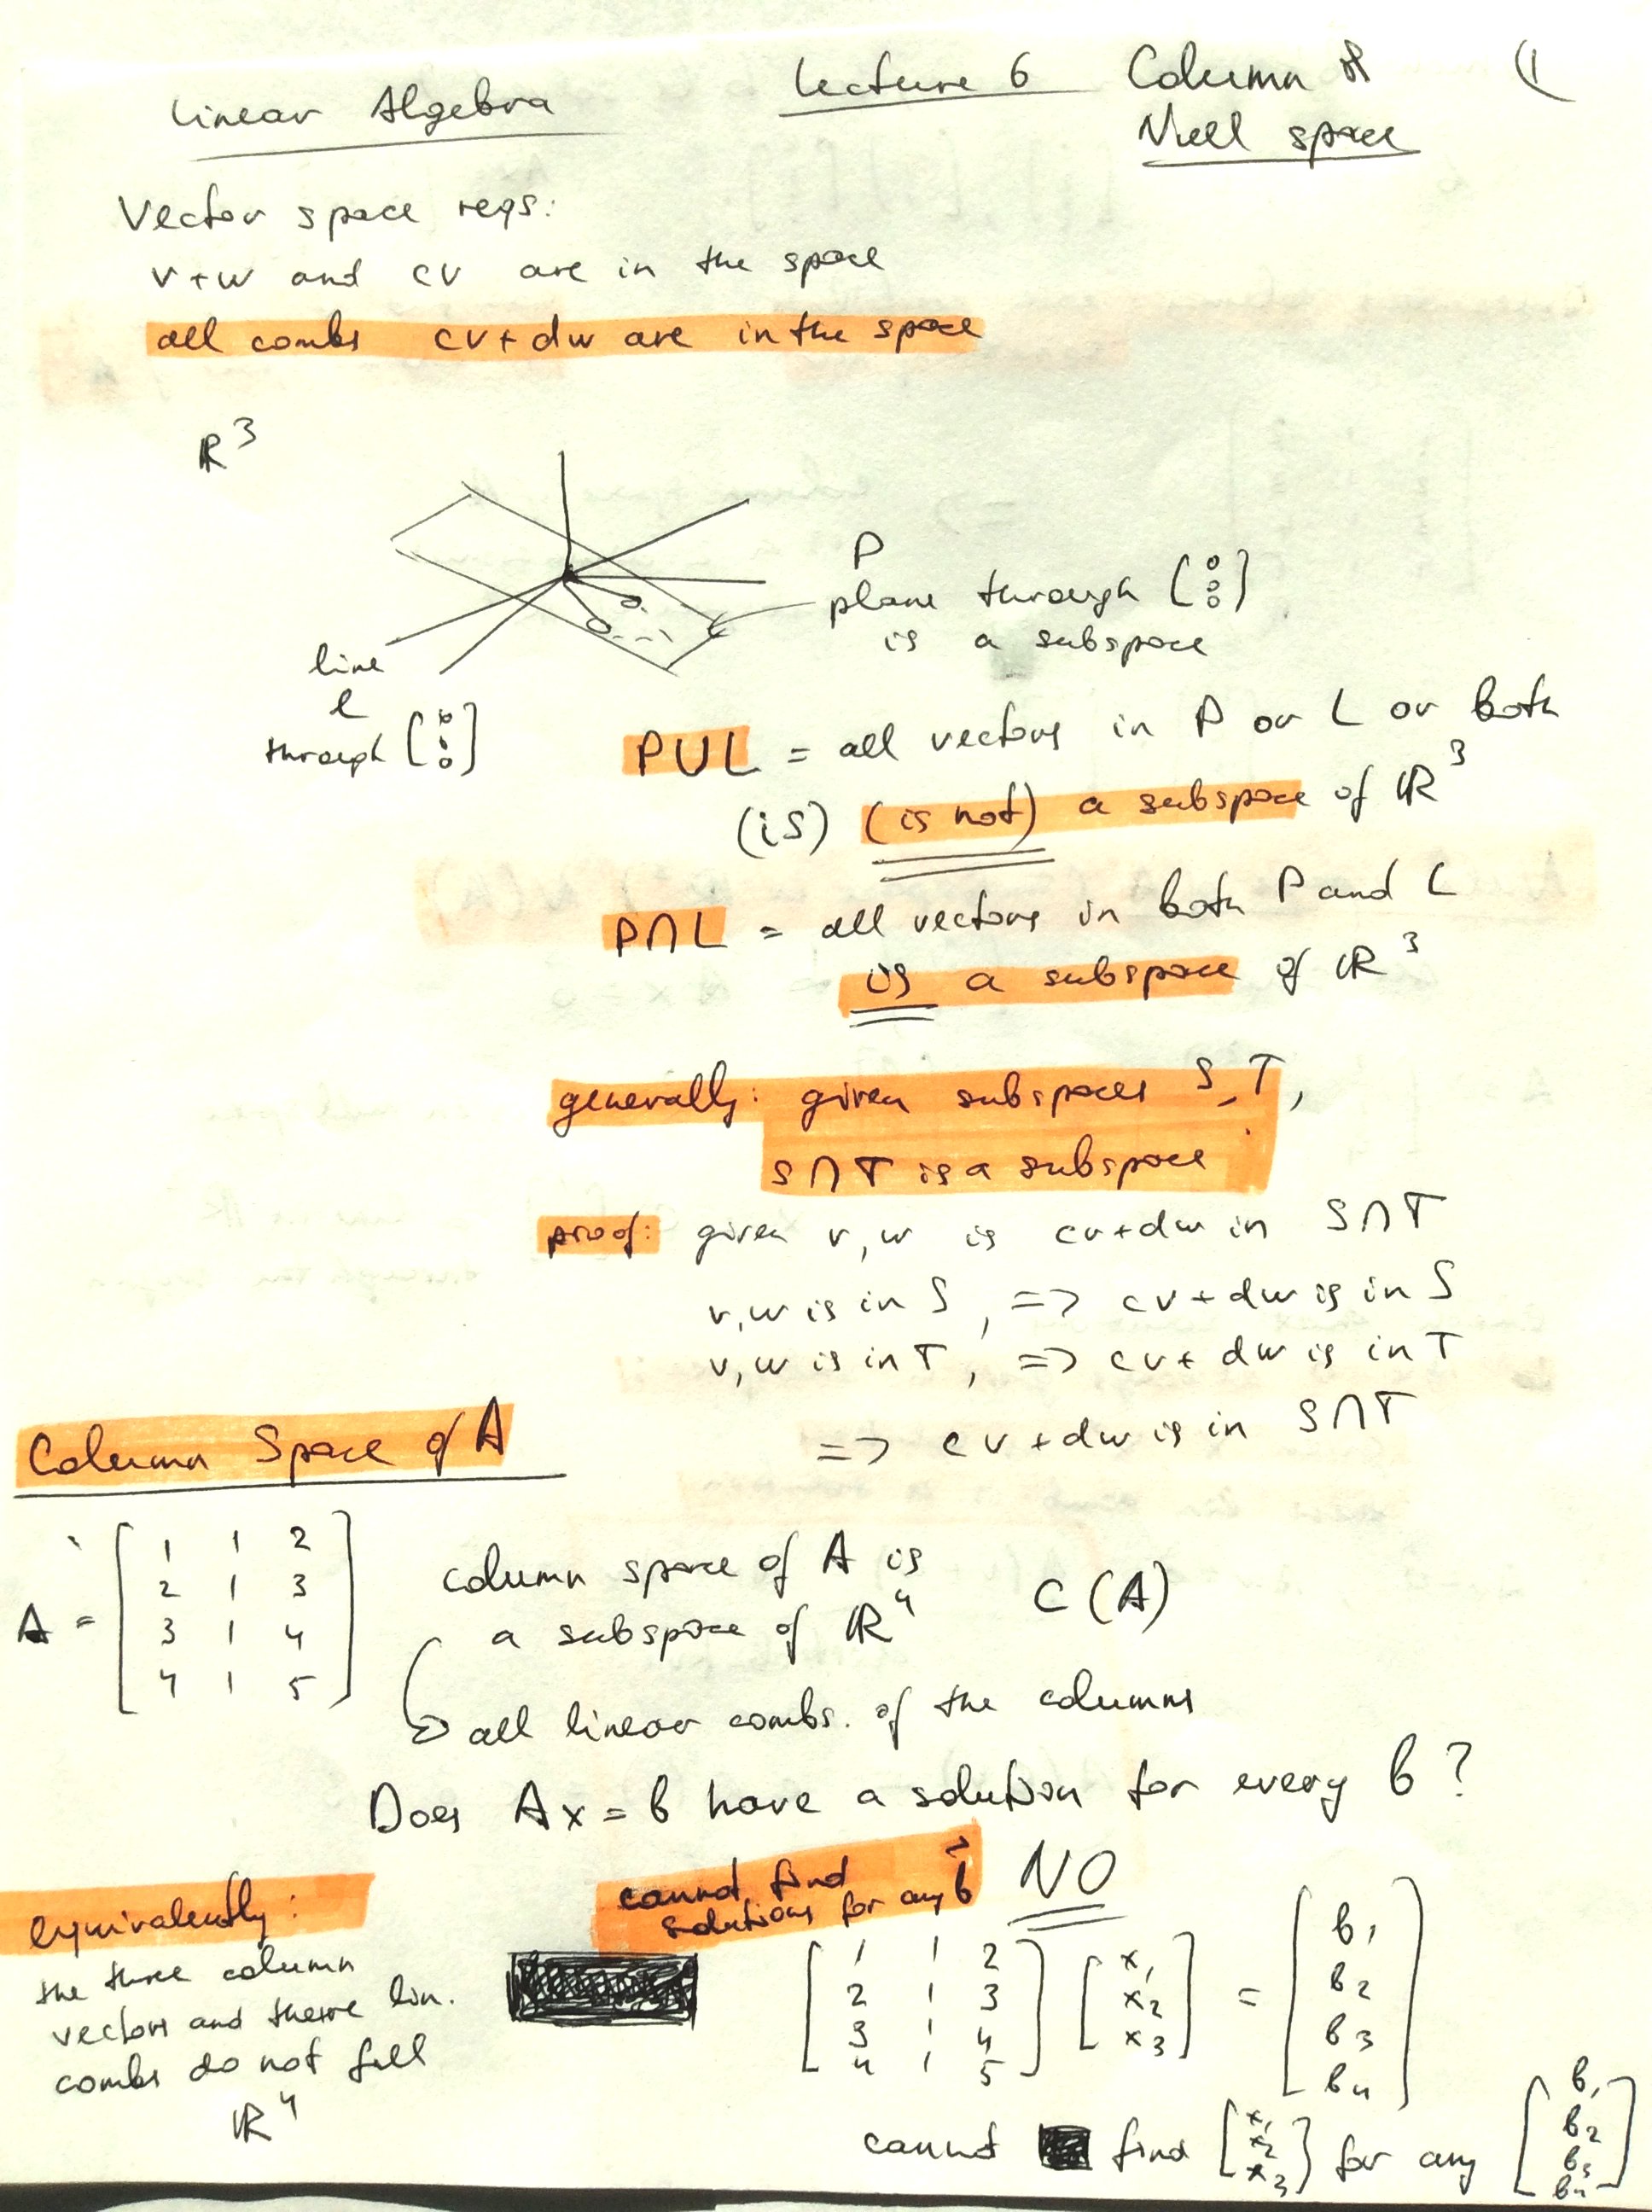 Linear Algebra Lecture 6 Column & (1
Null space
Vector space reqs:
v+w and cv are in the space
all combs cv+dw are in the space
R³
P
plane through [0 0 0]
is a subspace
line
l
through [0 0 0]
P∪L = all vectors in P or L or both
(is) (is not) a subspace of R³
P∩L = all vectors in both P and L
is a subspace of R³
generally: given subspaces S, T,
S∩T is a subspace
proof: given v,w is cv+dw in S∩T
v,w is in S, => cv+dw is in S
v,w is in T, => cv+dw is in T
=> cv+dw is in S∩T
Column Space of A
A = [1 1 2
2 1 3
3 1 4
4 1 5]
column space of A is C(A)
a subspace of R⁴
all linear combs. of the columns
Does Ax = b have a solution for every b?
NO
cannot find
solutions for any b
equivalently:
the three column
vectors and there lin.
combs do not fill
R⁴
[1 1 2] [x₁] = [b₁]
[2 1 3] [x₂] [b₂]
[3 1 4] [x₃] [b₃]
[4 1 5] [b₄]
cannot find [x₁ x₂ x₃] for any [b₁ b₂ b₃ b₄]